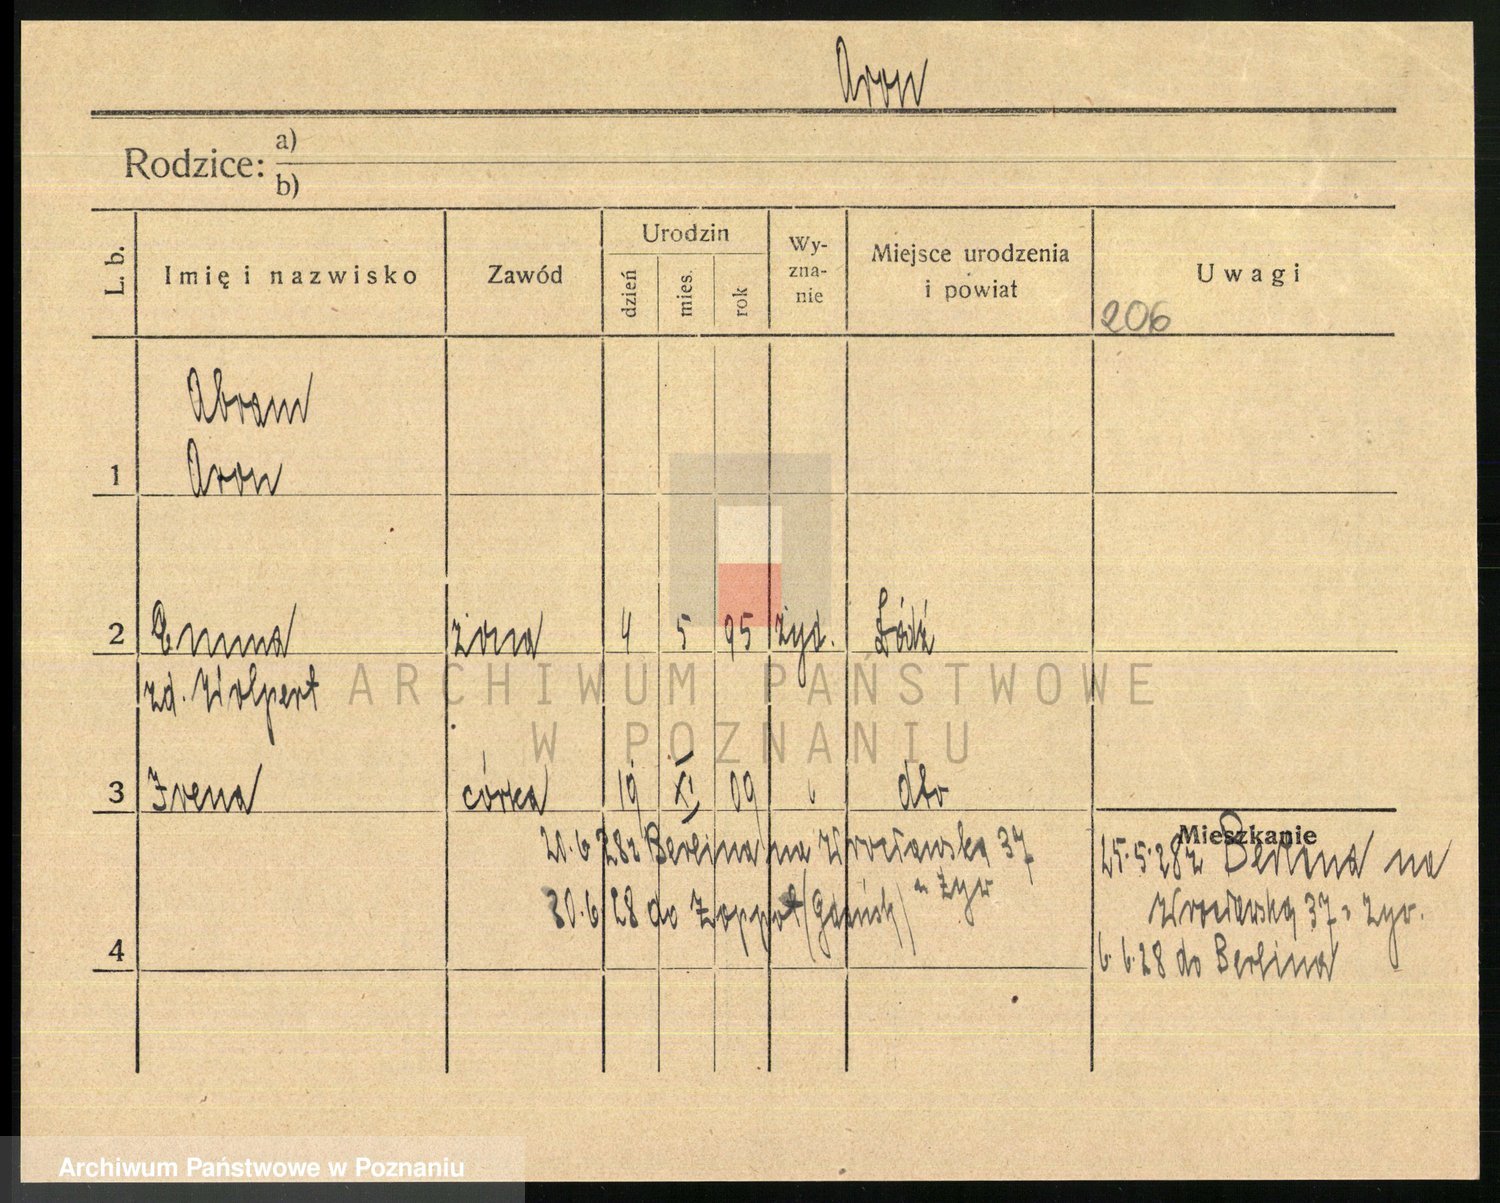 Aron
Rodzice: a)
b)
L. b. Imię i nazwisko Zawód Urodzin dzień mies. rok Wy-zna-nie Miejsce urodzenia i powiat Uwagi
206
Abram
1 Aron
2 Emma żona 4 5 95 żyd. Łódź
zd. Wolpert
ARCHIWUM PAŃSTWOWE
W POZNANIU
3 Irena córka 19 XI 09 dto
Mieszkanie
20.6.28 z Berlina na Wrocławska 37
25.5.28 z Berlina na
Wrocławska 37
30.6.28 do Zoppot (Gdańsk)
4
6.6.28 do Berlina
Archiwum Państwowe w Poznaniu